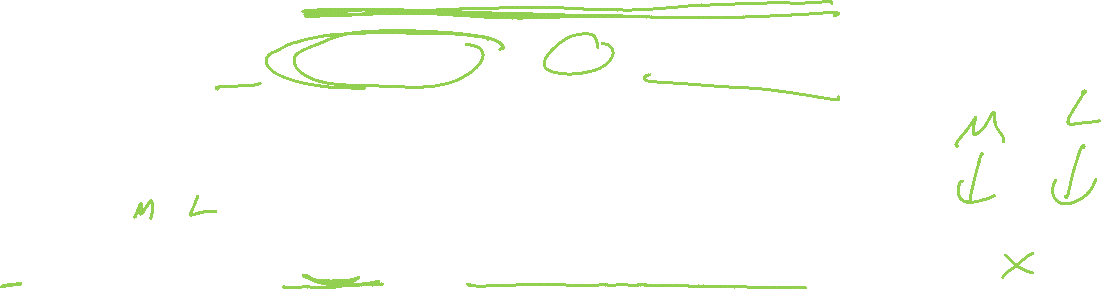 M L
M L
X